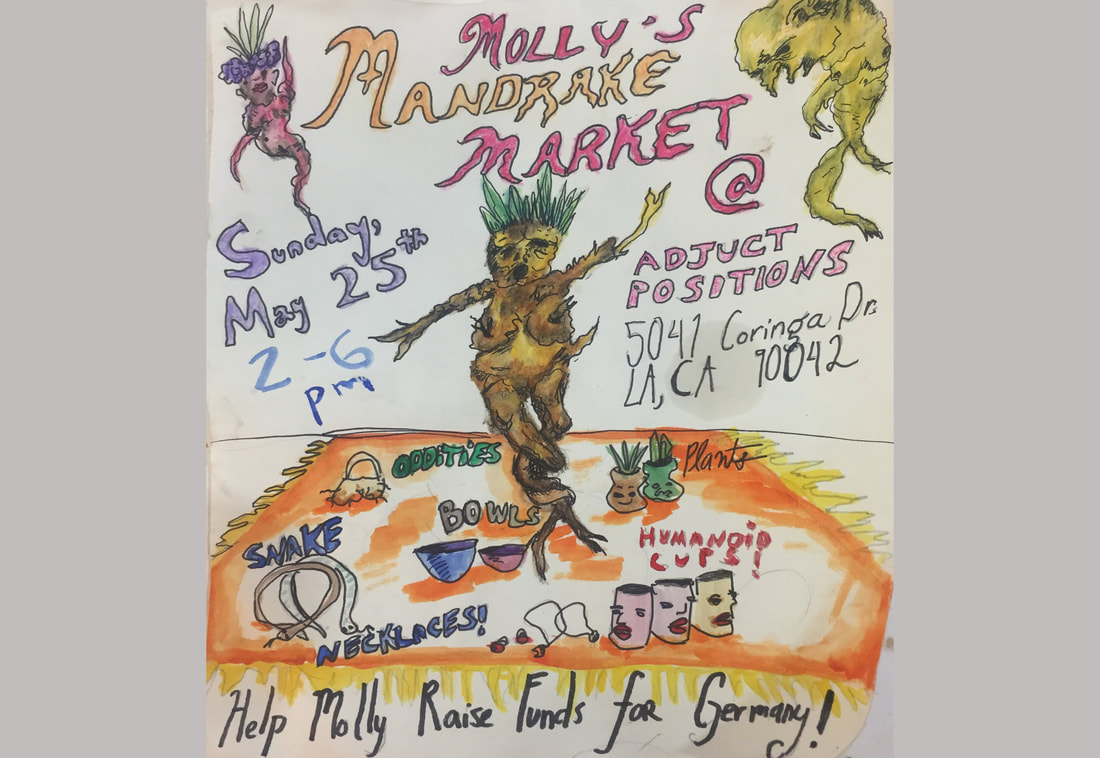 MOLLY'S
MANDRAKE
MARKET
@
Sunday,
May 25th
2-6
pm
ADJUCT
POSITIONS
5041 Coringa Dr.
LA, CA 90042
ODDITIES
Plants
BOWLS
SNAKE
NECKLACES!
HUMANOID
CUPS!
Help Molly Raise Funds for Germany!